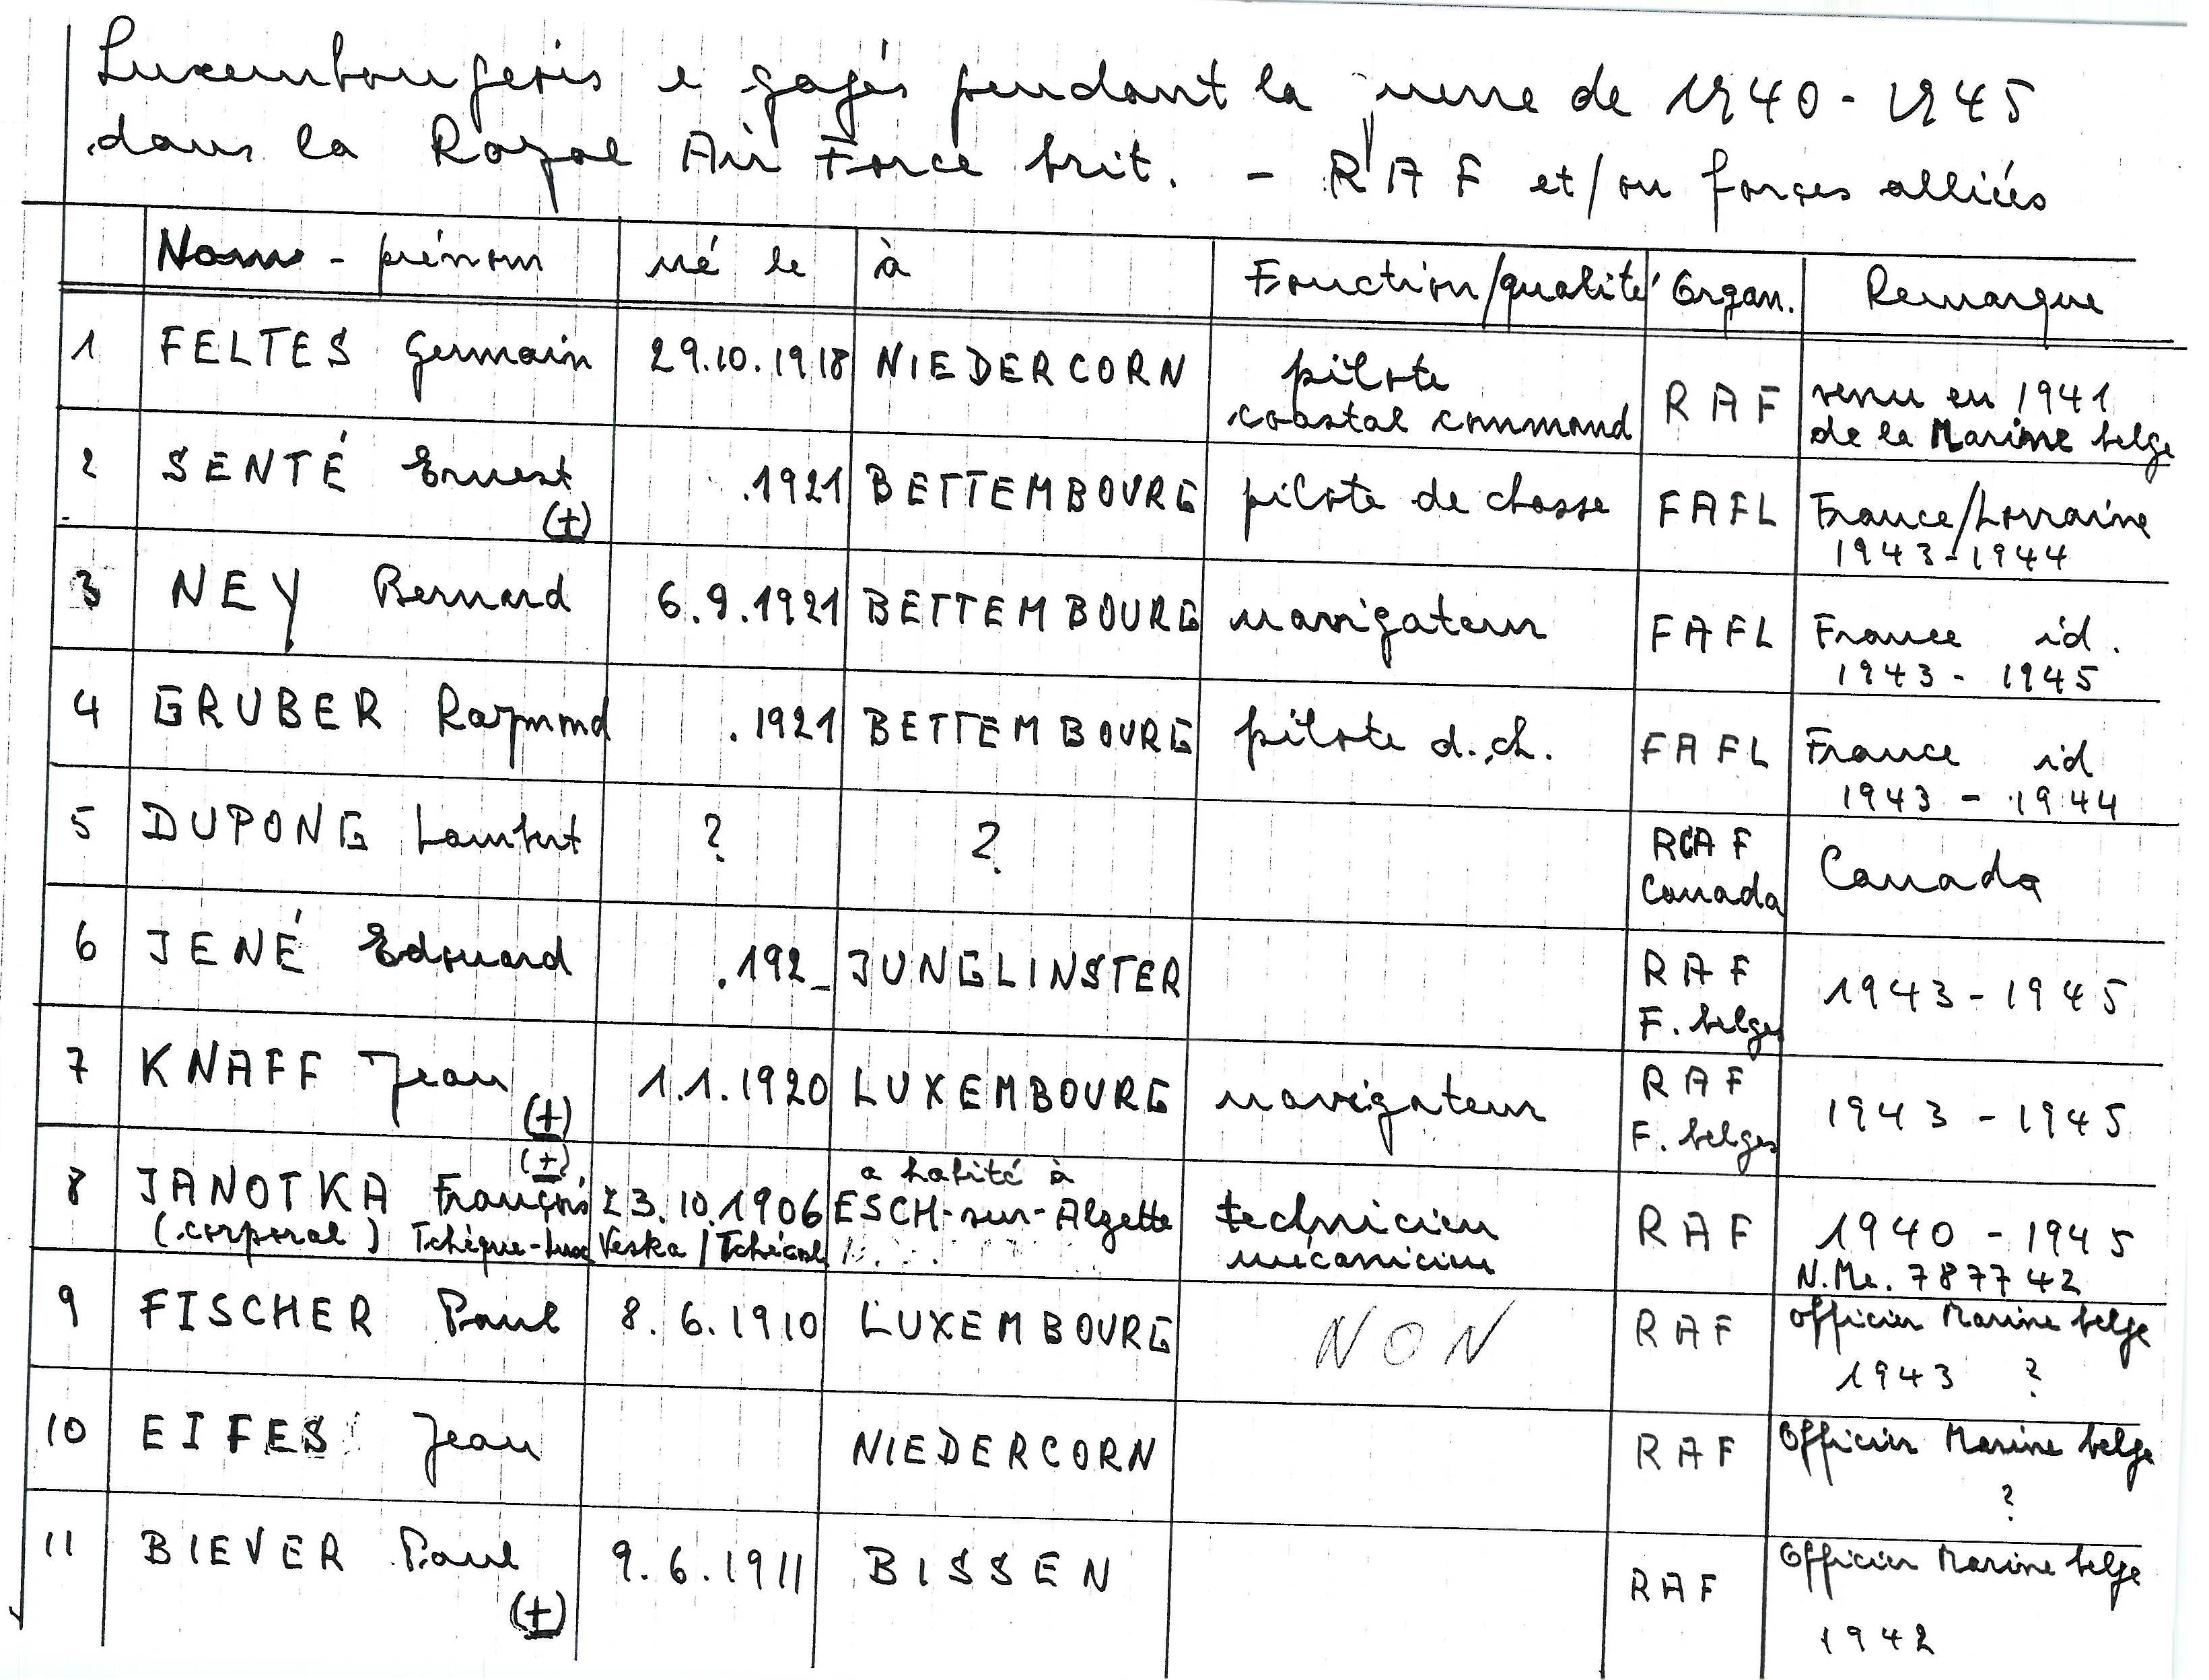 Luxembourgeois e gagés pendant la uerre de 1940 - 1945
dans la Royal Air Force brit. - RAF et/ou forces alliées
Nom - prénom né le à Fonction/qualité Organ. Remarque
1 FELTES Germain 29.10.1918 NIEDERCORN pilote coastal command RAF venu en 1941 de la Marine belge
2 SENTÉ Ernest (+) .1921 BETTEMBOURG pilote de chasse FAFL France/Lorraine 1943-1944
3 NEY Bernard 6.9.1921 BETTEMBOURG navigateur FAFL France id. 1943 - 1945
4 GRUBER Raymond .1921 BETTEMBOURG pilote d.ch. FAFL France id 1943 - 1944
5 DUPONG Lambert ? ? RCAF Canada Canada
6 JENÉ Edouard .192_ JUNGLINSTER RAF F. belges 1943 - 1945
7 KNAFF Jean (+) 1.1.1920 LUXEMBOURG navigateur RAF F. belges 1943 - 1945
8 JANOTKA François (+) (corporal) Tchèque-Lux 23.10.1906 Veska / Tchécosl a habité à ESCH-sur-Alzette technicien mécanicien RAF 1940 - 1945 N.Me. 787742
9 FISCHER Paul 8.6.1910 LUXEMBOURG NON RAF officier Marine belge 1943 ?
10 EIFES Jean NIEDERCORN RAF Officier Marine belge ?
11 BIEVER Paul (+) 9.6.1911 BISSEN RAF Officier Marine belge 1942